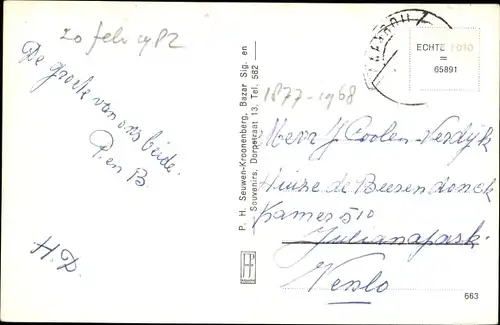 20 feb 1982
De groet van ons beide.
P. en B.
H.P.
P. H. Seuwen-Kroonenberg, Bazar Sig. en
Souvenirs, Dorpstraat 13, Tel. 582
1877-1968
ECHTE FOTO
=
65891
Heer J Coolen-Verdijk
Huize de Beerendonck
Kamer 510
Julianapark
Venlo
663